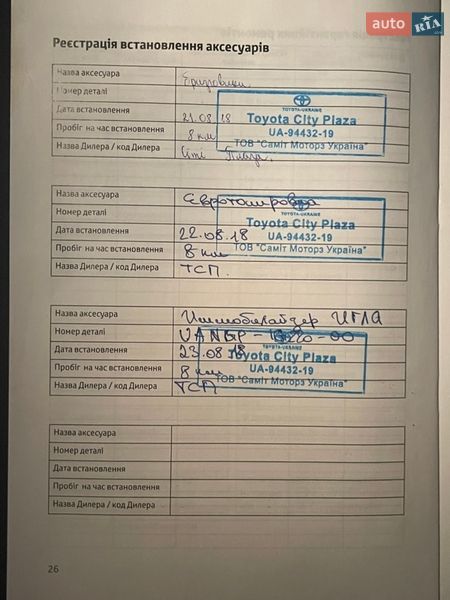 auto RIA
Реєстрація встановлення аксесуарів
Назва аксесуара Бризговики
Номер деталі
TOYOTA-UKRAINE
Дата встановлення 21.08.18
Toyota City Plaza
Пробіг на час встановлення 8 км
UA-94432-19
Назва Дилера / код Дилера Сіті Плаза.
ТОВ "Саміт Моторз Україна"
Назва аксесуара Євротонировка
Номер деталі
TOYOTA-UKRAINE
Toyota City Plaza
Дата встановлення 22.08.18
UA-94432-19
Пробіг на час встановлення 8 км
ТОВ "Саміт Моторз Україна"
Назва Дилера / код Дилера ТСП.
Назва аксесуара Иммобилайзер ИГЛА
Номер деталі
TOYOTA-UKRAINE
Дата встановлення 23.08.18
Toyota City Plaza
UA-94432-19
Пробіг на час встановлення 8 км
ТОВ "Саміт Моторз Україна"
Назва Дилера / код Дилера ТСП
Назва аксесуара
Номер деталі
Дата встановлення
Пробіг на час встановлення
Назва Дилера / код Дилера
26